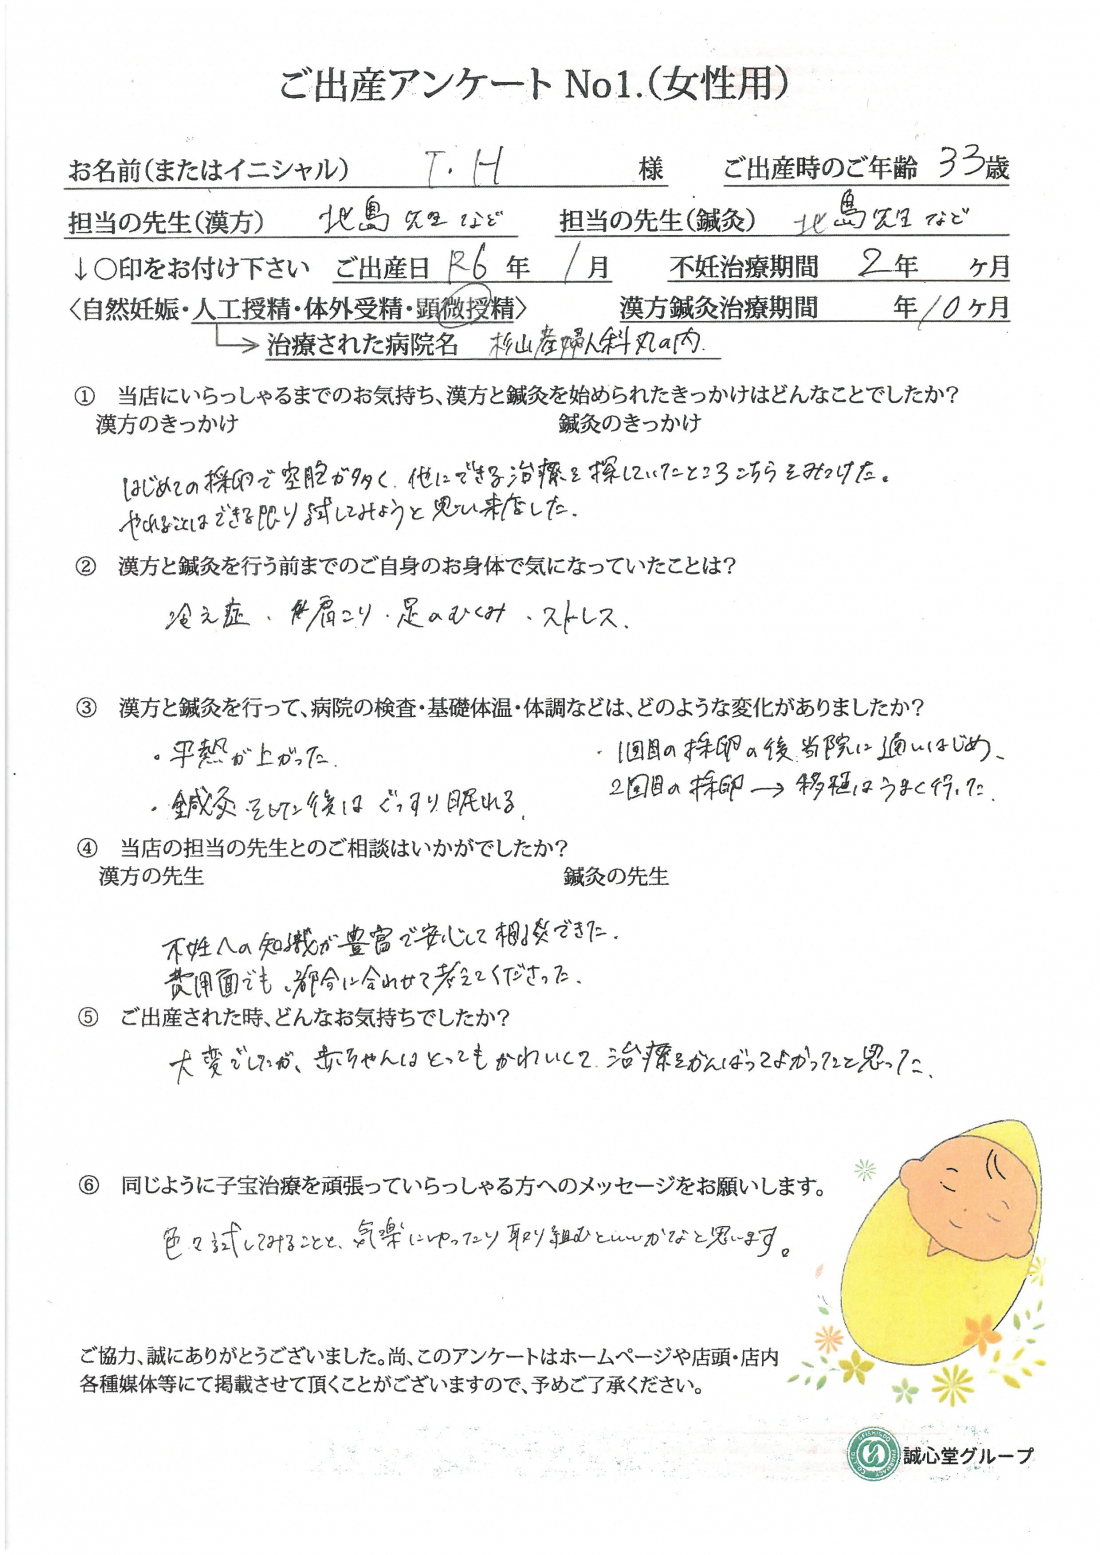 ご出産アンケート No1.(女性用)
お名前(またはイニシャル) T.H 様 ご出産時のご年齢 33歳
担当の先生(漢方) 北島先生など 担当の先生(鍼灸) 北島先生など
↓○印をお付け下さい ご出産日 R6年 1月 不妊治療期間 2年 ヶ月
〈自然妊娠・人工授精・体外受精・顕微授精〉 漢方鍼灸治療期間 年10ヶ月
治療された病院名 杉山産婦人科丸の内.
① 当店にいらっしゃるまでのお気持ち、漢方と鍼灸を始められたきっかけはどんなことでしたか?
漢方のきっかけ 鍼灸のきっかけ
はじめての採卵で空胞が多く、他にできる治療を探していたところこちらをみつけた。
やれることはできる限り試してみようと思い来店した.
② 漢方と鍼灸を行う前までのご自身のお身体で気になっていたことは?
冷え症・肩こり・足のむくみ・ストレス.
③ 漢方と鍼灸を行って、病院の検査・基礎体温・体調などは、どのような変化がありましたか?
・平熱が上がった. ・1回目の採卵の後、当院に通いはじめ、
2回目の採卵→移植はうまく行った.
・鍼灸をした後はぐっすり眠れる.
④ 当店の担当の先生とのご相談はいかがでしたか?
漢方の先生 鍼灸の先生
不妊への知識が豊富で安心して相談できた.
費用面でも、都合に合わせて考えてくださった.
⑤ ご出産された時、どんなお気持ちでしたか?
大変でしたが、赤ちゃんはとってもかわいくて、治療をがんばってよかったと思った.
⑥ 同じように子宝治療を頑張っていらっしゃる方へのメッセージをお願いします。
色々試してみることと、気楽にゆったり取り組むといいかなと思います。
ご協力、誠にありがとうございました。尚、このアンケートはホームページや店頭・店内
各種媒体等にて掲載させて頂くことがございますので、予めご了承ください。
誠心堂グループ